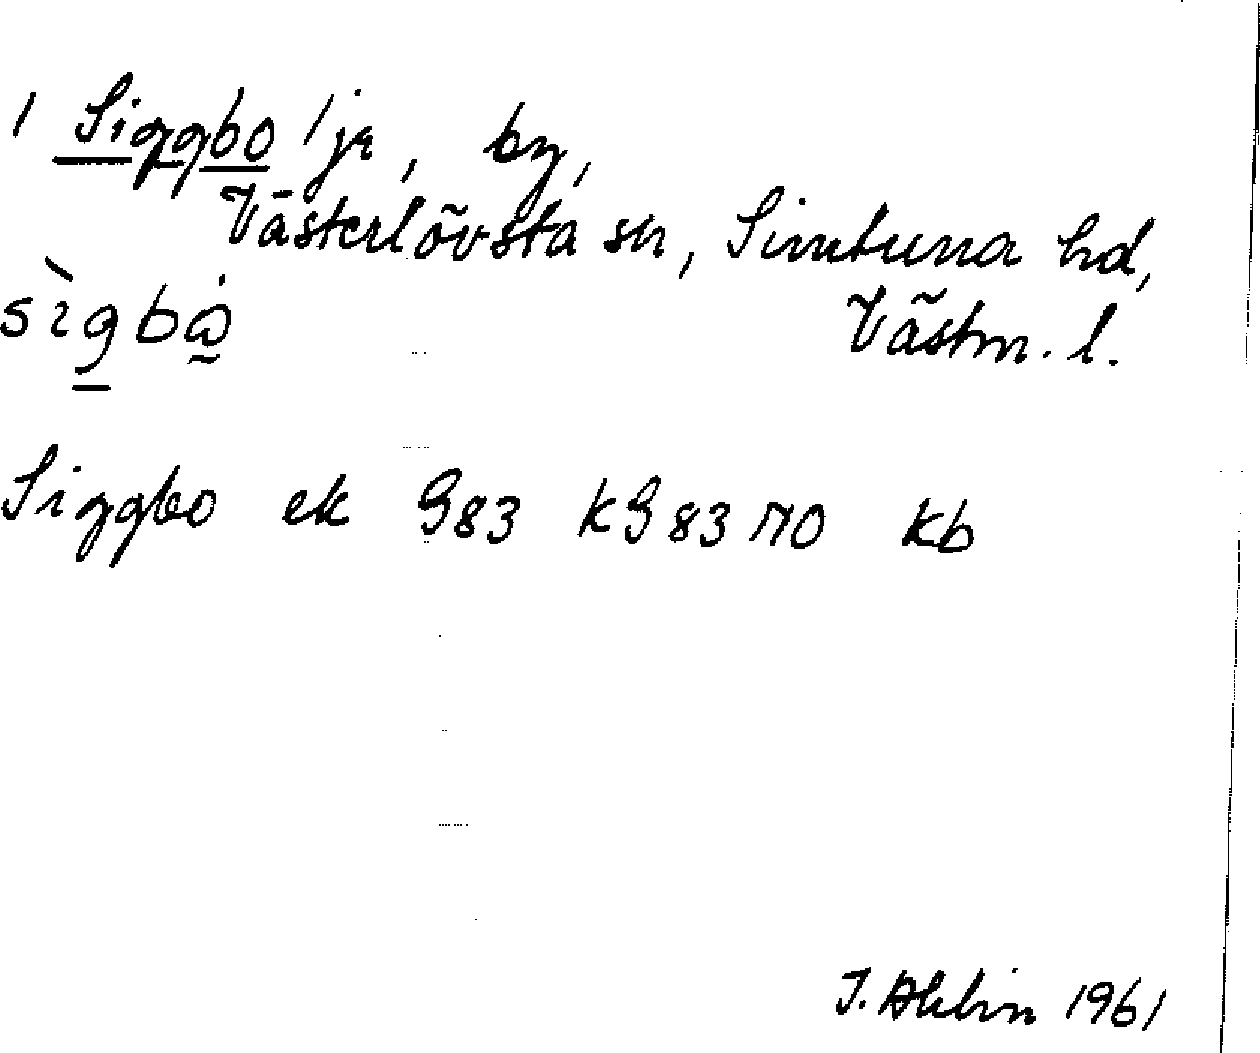 / Siggbo / jr, by,
Västerlövsta sn, Simtuna hd,
sìgbå̇
Västm. l.
Siggbo ek G83 kG83 770 Kb
J. Ahlin 1961